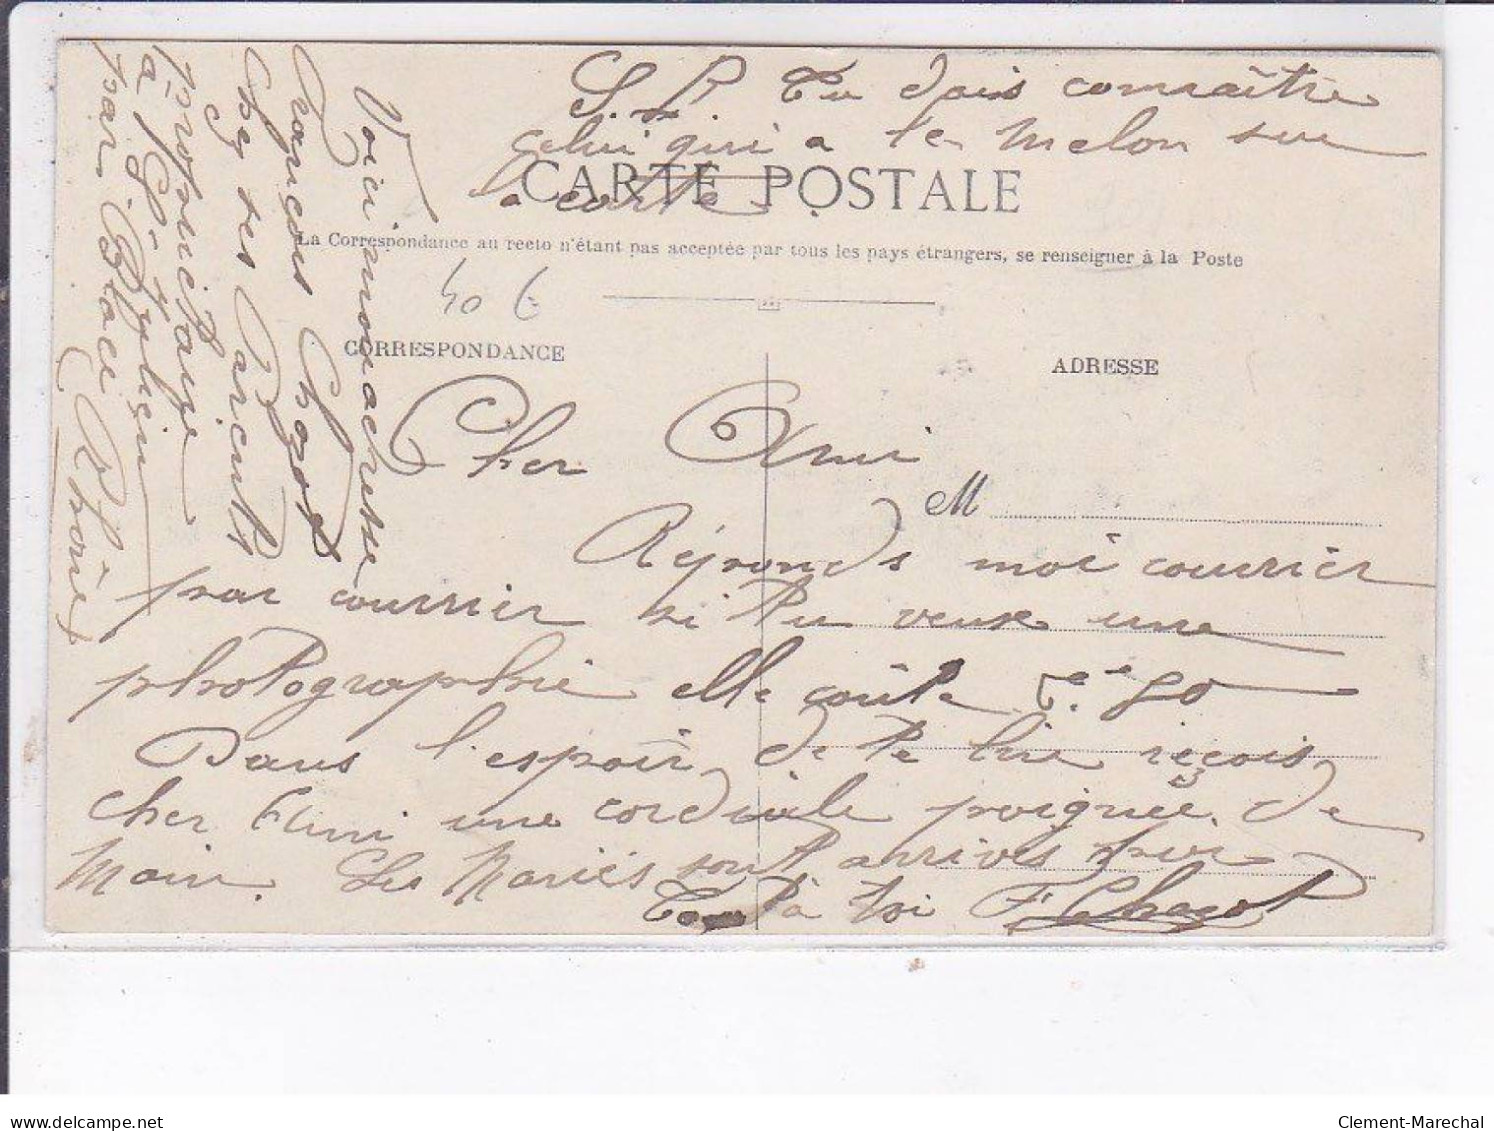 S. P. Tu dois connaître
celui qui a le melon sur
la carte
CARTE POSTALE
La Correspondance au recto n'étant pas acceptée par tous les pays étrangers, se renseigner à la Poste
40 €
CORRESPONDANCE
ADRESSE
M
Cher Ami
Réponds moi courrier
par courrier si tu veux une
photographie elle coûte 50
Dans l'espoir de te lire reçois
cher Ami une cordiale poignée de
Main. Les Mariés sont arrivés hier
Tout à toi F Chagot
Voici mon adresse
François Chagot
Chez ses Parents
propriétaire
à St Julien
par Blacé Rhône
Clement-Marechal
delcampe.net